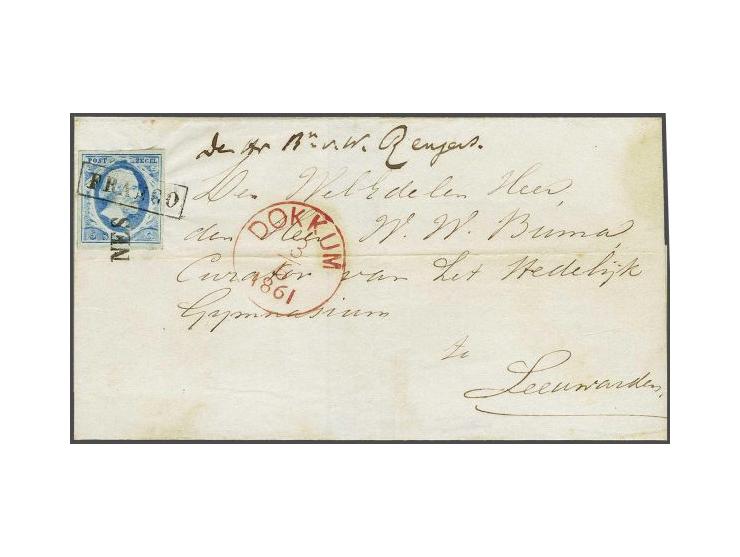 POST ZEGEL
FRANCO
NES
den Hr Bn v. W. Rengers.
Den WelEdelen Heer,
den Heer W. W. Buma,
Curator van het Stedelijk
Gymnasium
te
Leeuwarden.
DOKKUM
1861